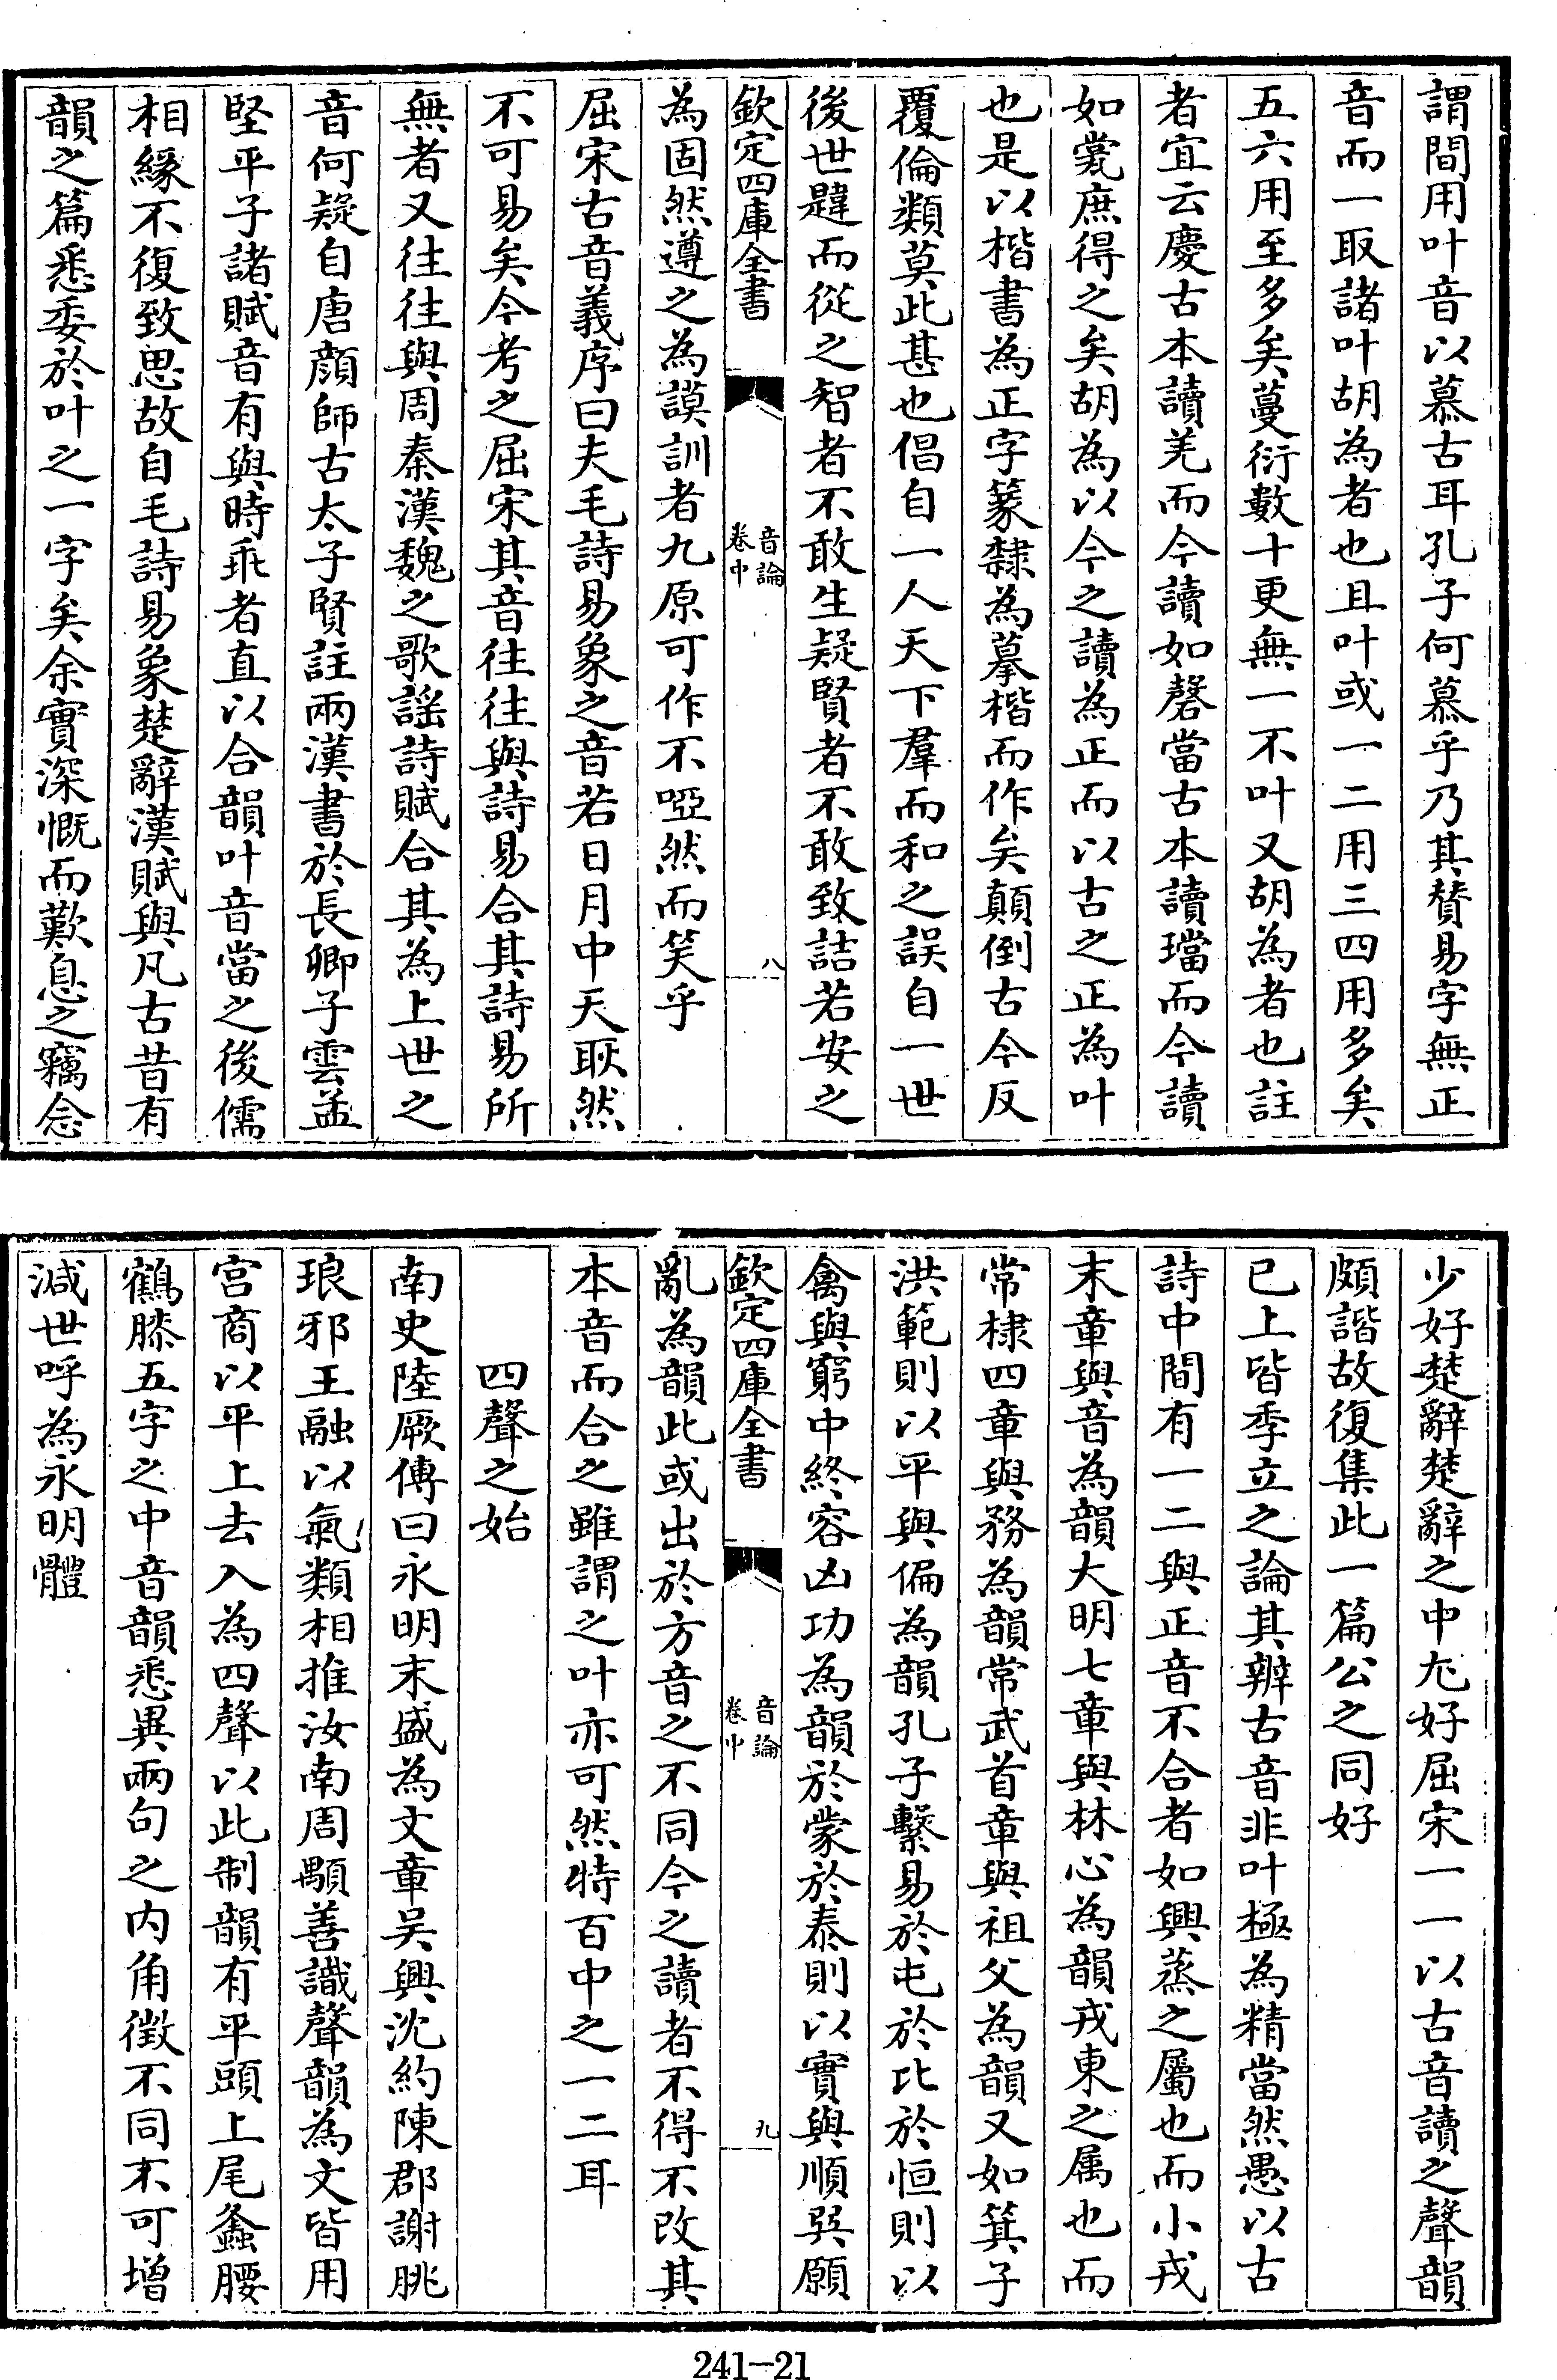 謂間用叶音以慕古耳孔子何慕乎乃其賛易字無正
音而一取諸叶胡為者也且叶或一二用三四用多矣
五六用至多矣蔓衍數十更無一不叶又胡為者也註
者宜云慶古本讀羌而今讀如磬當古本讀璫而今讀
如甞庶得之矣胡為以今之讀為正而以古之正為叶
也是以楷書為正字篆隸為摹楷而作矣顛倒古今反
覆倫類莫此甚也倡自一人天下羣而和之誤自一世
後世韙而從之智者不敢生疑賢者不敢致詰若安之
欽定四庫全書
音論
卷中
八
為固然遵之為謨訓者九原可作不啞然而笑乎
屈宋古音義序曰夫毛詩易象之音若日月中天耿然
不可易矣今考之屈宋其音往往與詩易合其詩易所
無者又往往與周秦漢魏之歌謠詩賦合其為上世之
音何疑自唐顔師古太子賢註兩漢書於長卿子雲孟
堅平子諸賦音有與時乖者直以合韻叶音當之後儒
相緣不復致思故自毛詩易象楚辭漢賦與凡古昔有
韻之篇悉委於叶之一字矣余實深慨而歎息之竊念
少好楚辭楚辭之中尤好屈宋一一以古音讀之聲韻
頗諧故復集此一篇公之同好
已上皆季立之論其辨古音非叶極為精當然愚以古
詩中間有一二與正音不合者如興蒸之屬也而小戎
末章與音為韻大明七章與林心為韻戎東之属也而
常棣四章與務為韻常武首章與祖父為韻又如箕子
洪範則以平與偏為韻孔子繫易於屯於比於恒則以
禽與窮中終容凶功為韻於蒙於泰則以實與順巽願
欽定四庫全書
音論
卷中
九
亂為韻此或出於方音之不同今之讀者不得不改其
本音而合之雖謂之叶亦可然特百中之一二耳
四聲之始
南史陸厥傳曰永明末盛為文章吴興沈約陳郡謝朓
琅邪王融以氣類相推汝南周顒善識聲韻為文皆用
宫商以平上去入為四聲以此制韻有平頭上尾蠭腰
鶴膝五字之中音韻悉異兩句之内角徵不同不可增
減世呼為永明體
241-21